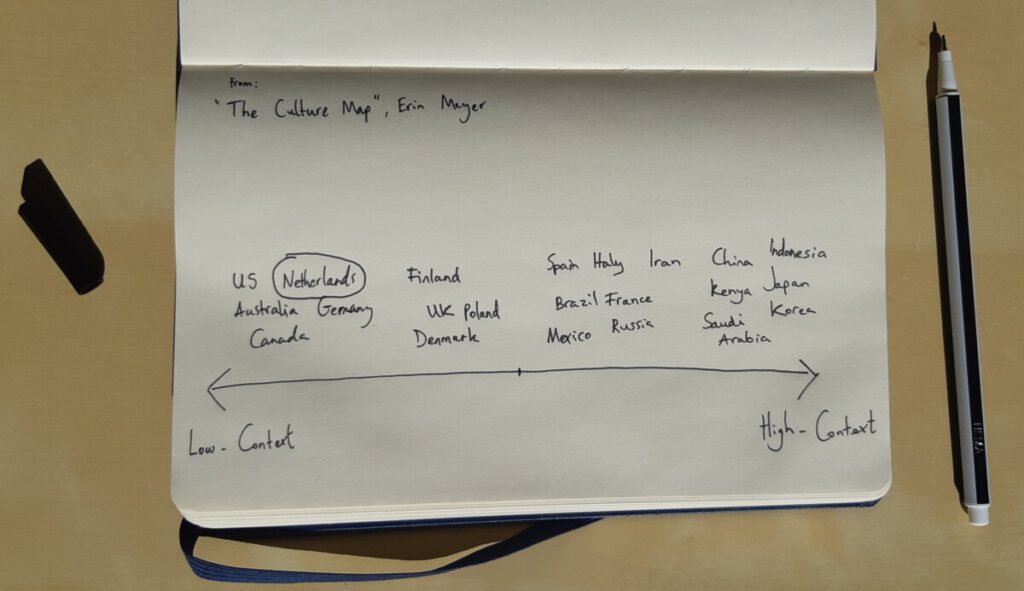 From:
"The Culture Map", Erin Meyer
US Netherlands Finland Spain Italy Iran China Indonesia
Australia Germany UK Poland Brazil France Kenya Japan
Canada Denmark Mexico Russia Saudi Arabia Korea
Low-Context High-Context